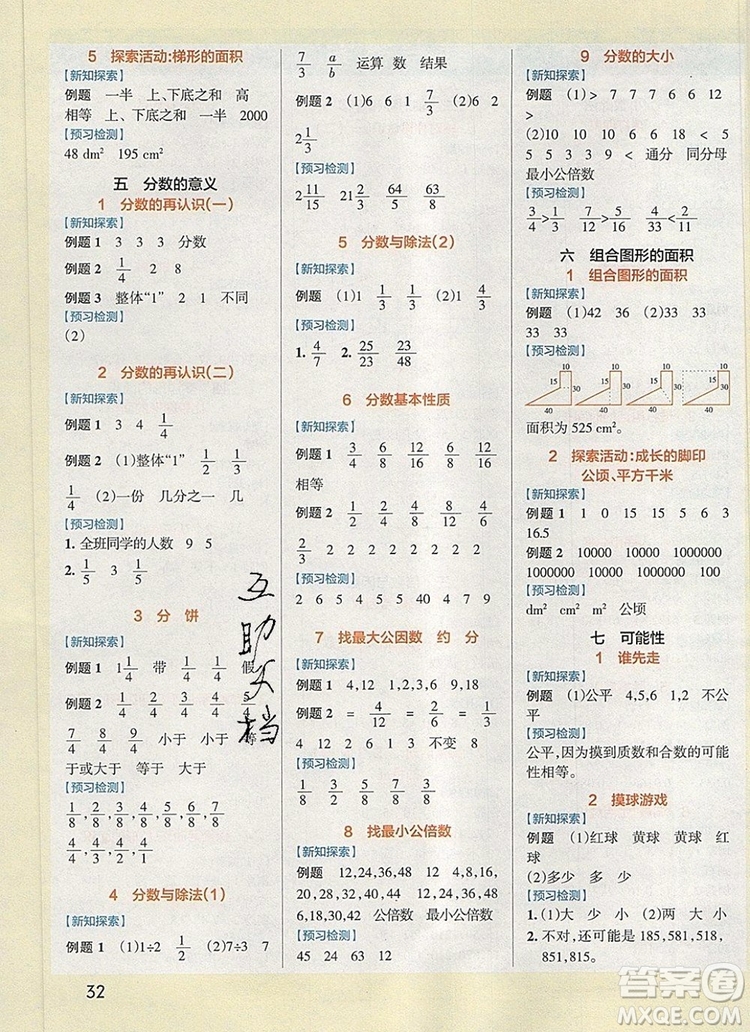 5 探索活动:梯形的面积
【新知探索】
例题 一半 上、下底之和 高
相等 上、下底之和 一半 2000
【预习检测】
48 dm² 195 cm²
五 分数的意义
1 分数的再认识(一)
【新知探索】
例题 1 3 3 3 分数
例题 2 1/4 2 8
例题 3 整体“1” 1 2 不同
【预习检测】
(2)
2 分数的再认识(二)
【新知探索】
例题 1 3 4 1/4
例题 2 (1)整体“1” 1/2 1/3
1/4 (2)一份 几分之一 几
【预习检测】
1. 全班同学的人数 9 5
2. 1/5 3 1/5
3 分 饼
【新知探索】
例题 1 1 1/4 带 1/4 1/4 假
例题 2 1/4 2/4 3/4 4/4 5/4
7/4 8/4 9/4 小于 小于 大
于或大于 等于 大于
【预习检测】
1/8, 2/8, 3/8, 4/8, 5/8, 6/8, 7/8, 8/8,
4/4, 4/3, 4/2, 4/1
4 分数与除法(1)
【新知探索】
例题 1 (1)1÷2 1/2 (2)7÷3 7
7/3 a/b 运算 数 结果
例题 2 (1)6 6 1 7/3 (2)6 2
2 1/3
【预习检测】
2 11/15 21 1/2 64/5 53/4
5 分数与除法(2)
【新知探索】
例题 (1)1 1/3 1/3 (2)1 4/3
【预习检测】
1. 4/7 2. 25/23 23/48
6 分数基本性质
【新知探索】
例题 1 3/4 6/8 12/16 6/8 12/16
相等
例题 2 1/2 2/4 4/8 8/12 4/6
2/3 2 2 4 4 2 2 4 4
【预习检测】
2 6 5 4 5 40 9 10
7 找最大公因数 约 分
【新知探索】
例题 1 4,12 1,2,3,6 9,18
例题 2 = 4/12 = 2/6 = 1/3
4 12 2 6 1 3 不变 8
【预习检测】
3/8
8 找最小公倍数
【新知探索】
例题 12,24,36,48 12 4,8,16,
20,28,32,40,44 12,24,36,48
6,18,30,42 公倍数 最小公倍数
【预习检测】
45 24 63 12
9 分数的大小
【新知探索】
例题 (1)> 7 7 7 6 6 12
>
(2)10 10 10 6 6 18 < 5
5 5 6 6 18 < 通分 同分母
最小公倍数
【预习检测】
3/4>1/3 2/5>1/6 4/9<2/3
六 组合图形的面积
1 组合图形的面积
【新知探索】
例题 (1)42 36 (2)33 33
33 33
【预习检测】
10 10 10 10
15 15 15 15
30
40 40 40 40
面积为 525 cm²。
2 探索活动:成长的脚印
公顷、平方千米
【新知探索】
例题 1 1 0 15 15 5 6 3
16.5
例题 2 10000 10000 1000000
1000000 10000 100 100
【预习检测】
dm² cm² m² 公顷
七 可能性
1 谁先走
【新知探索】
例题 (1)公平 4,5,6 1,2 不公
平
【预习检测】
公平,因为摸到质数和合数的可能
性相等。
2 摸球游戏
【新知探索】
例题 (1)红球 黄球 黄球 红
球
(2)多少 多 少
【预习检测】
1. (1)大 少 小 (2)两 大 小
2. 不对,还可能是 185,581,518,
851,815。
互
助
文
档
32
答案圈
MXQE.COM